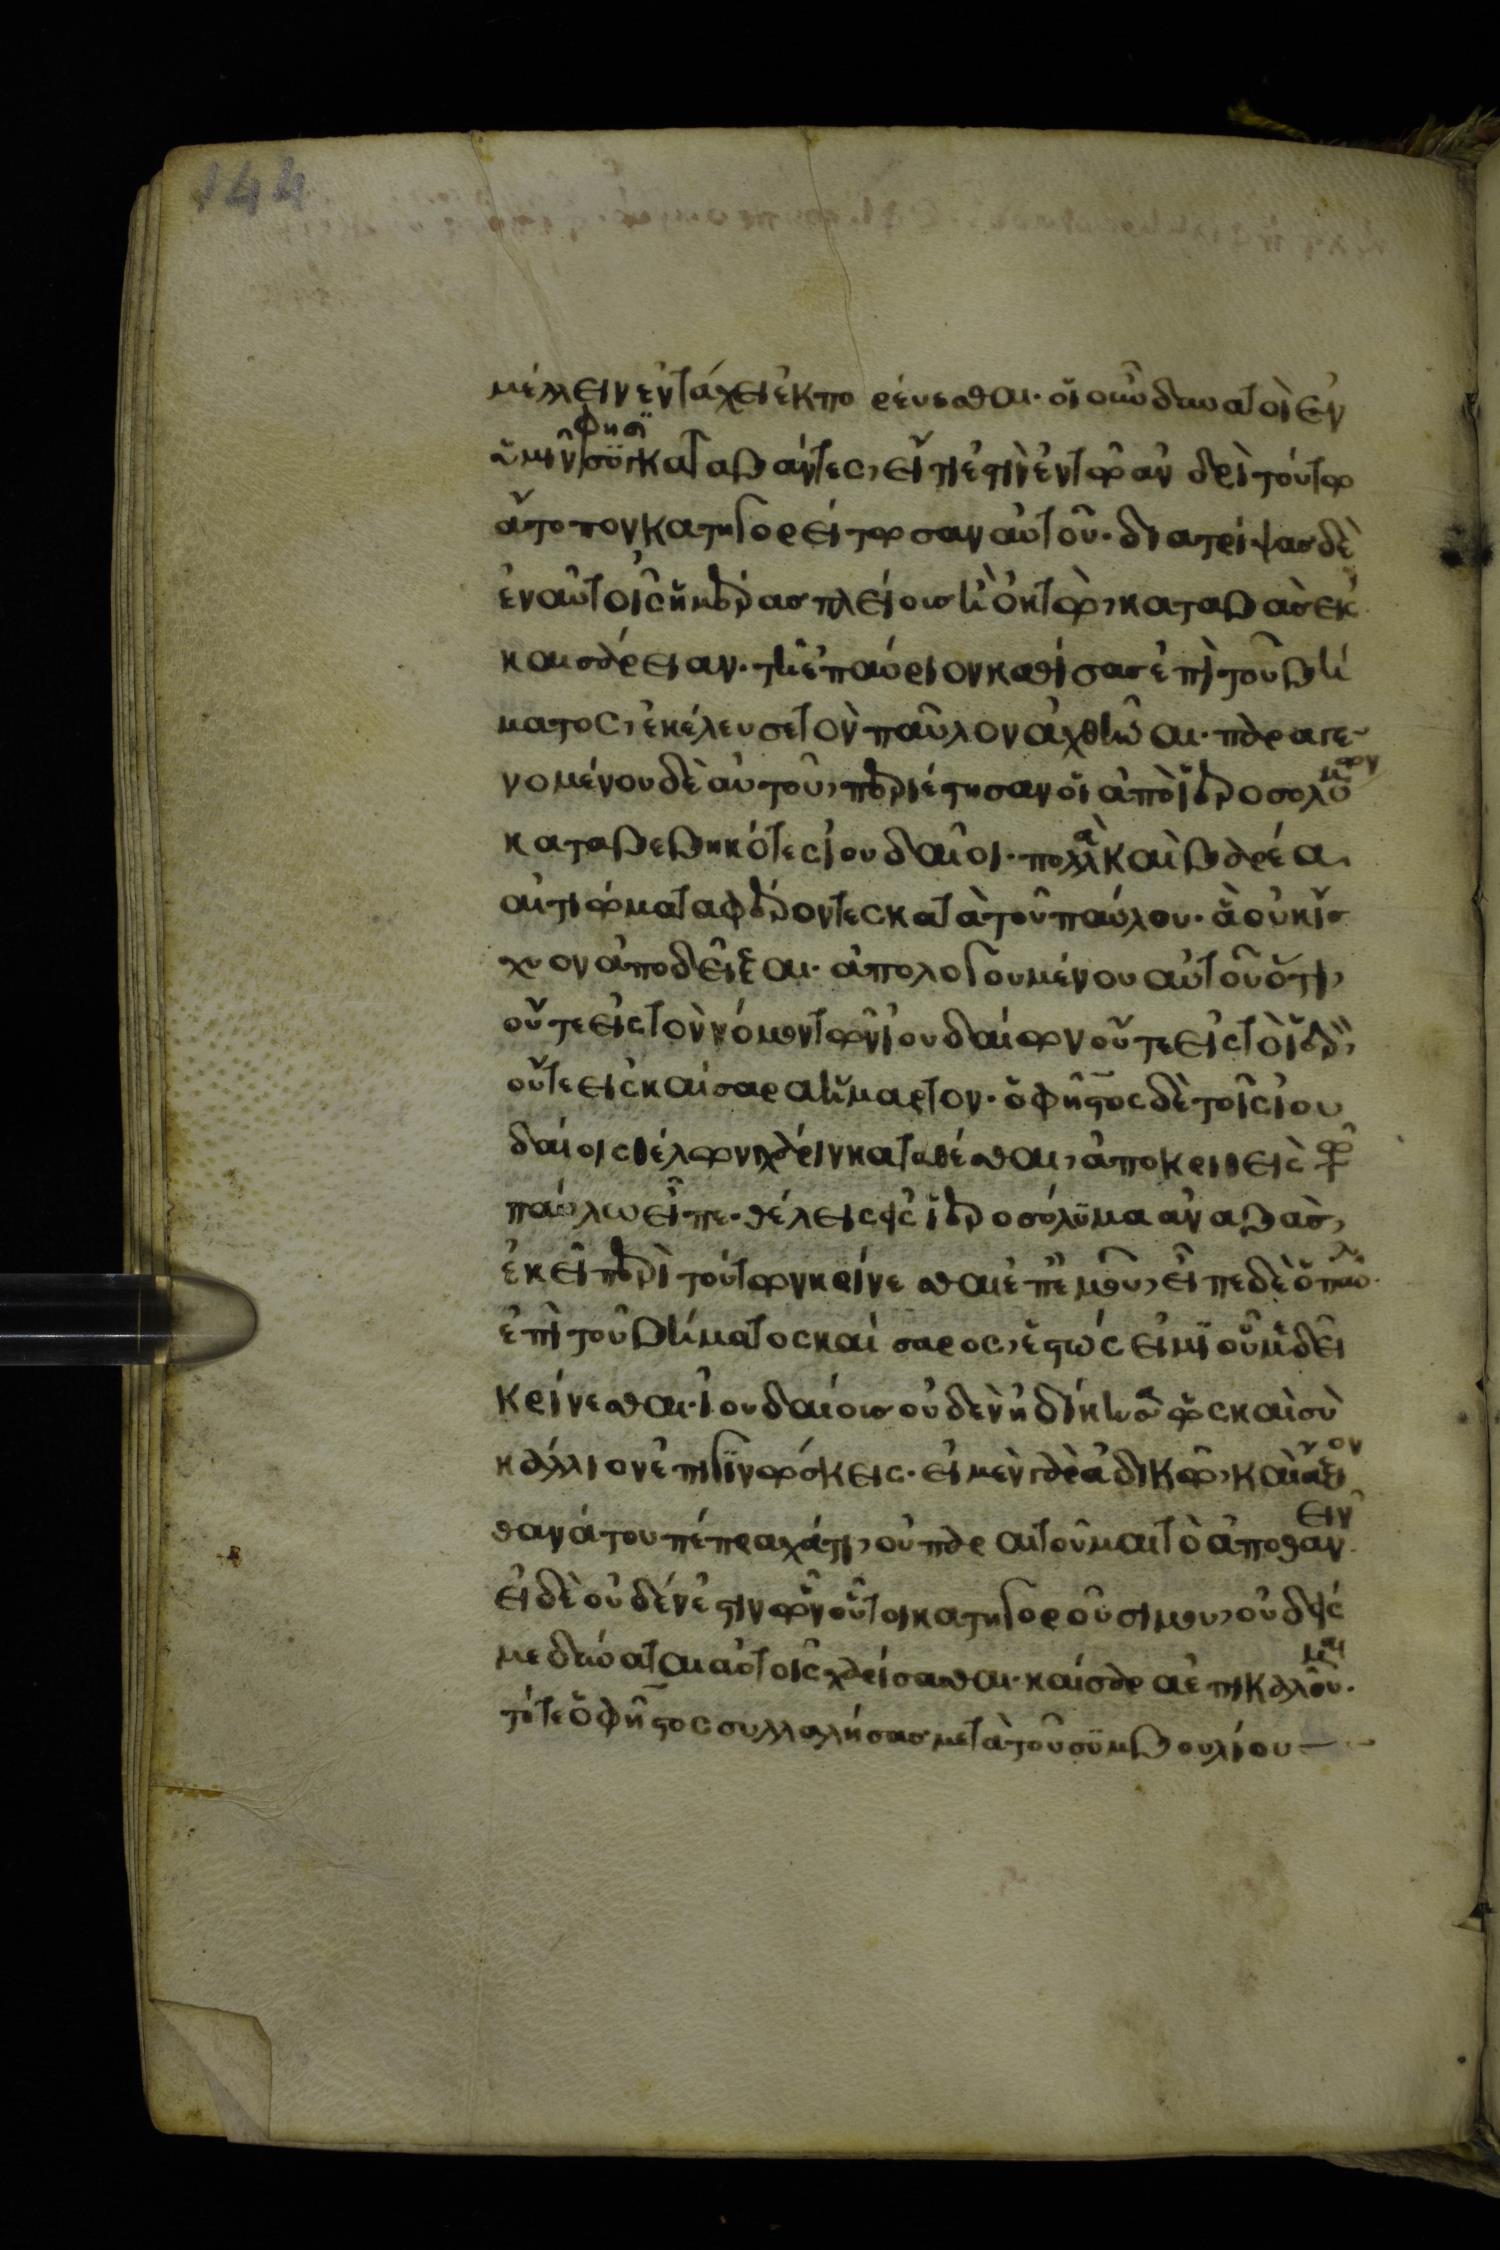 144
μέλλειν ἐν τάχει ἐκπορεύεσθαι· οἱ οὖν δυνατοὶ ἐν
ὑμῖν φησὶ συγκαταβάντες, εἴ τι ἐστὶν ἐν τῷ ἀνδρὶ τούτῳ
ἄτοπον κατηγορείτωσαν αὐτοῦ· διατρίψας δὲ
ἐν αὐτοῖς ἡμέρας πλείους ἢ ὀκτὼ, καταβὰς εἰς
καισάρειαν· τῇ ἐπαύριον καθίσας ἐπὶ τοῦ βή
ματος, ἐκέλευσε τὸν παῦλον ἀχθῆναι· παραγε
νομένου δὲ αὐτοῦ, περιέστησαν οἱ ἀπὸ ἱεροσολύμων
καταβεβηκότες ἰουδαῖοι· πολλὰ καὶ βαρέα
αἰτιώματα φέροντες κατὰ τοῦ παύλου· ἃ οὐκ ἴσ
χυον ἀποδεῖξαι· ἀπολογουμένου αὐτοῦ ὅτι,
οὔτε εἰς τὸν νόμον τῶν ἰουδαίων οὔτε εἰς τὸ ἱερὸν,
οὔτε εἰς καίσαρα τὶ ἥμαρτον· ὁ φῆστος δὲ τοῖς ἰου
δαίοις θέλων χάριν καταθέσθαι, ἀποκριθεὶς τῷ
παύλω εἶπε· θέλεις εἰς ἱεροσόλυμα ἀναβὰς,
ἐκεῖ περὶ τούτων κρίνεσθαι ἐπ' ἐμοῦ, εἶπε δὲ ὁ παῦλ
ἐπὶ τοῦ βήματος καίσαρος, ἑστώς εἰμι οὗ με δεῖ
κρίνεσθαι· ἰουδαίους οὐδὲν ἠδίκησα ὡς καὶ σὺ
κάλλιον ἐπιγινώσκεις· εἰ μὲν γὰρ ἀδικῶ, καὶ ἄξιον
θανάτου πέπραχά τι, οὐ παραιτοῦμαι τὸ ἀποθανεῖν
εἰ δὲ οὐδέν ἐστιν ὧν οὗτοι κατηγοροῦσι μου, οὐδείς
με δύναται αὐτοῖς χαρίσασθαι· καίσαρα ἐπικαλοῦμαι·
τότε ὁ φῆστος συλλαλήσας μετὰ τοῦ συμβουλίου